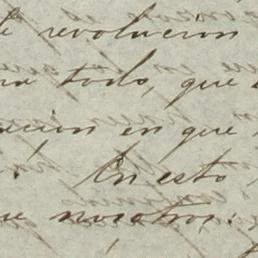 de revolucion
todo, que
cion en que
En esto
que nosotros: